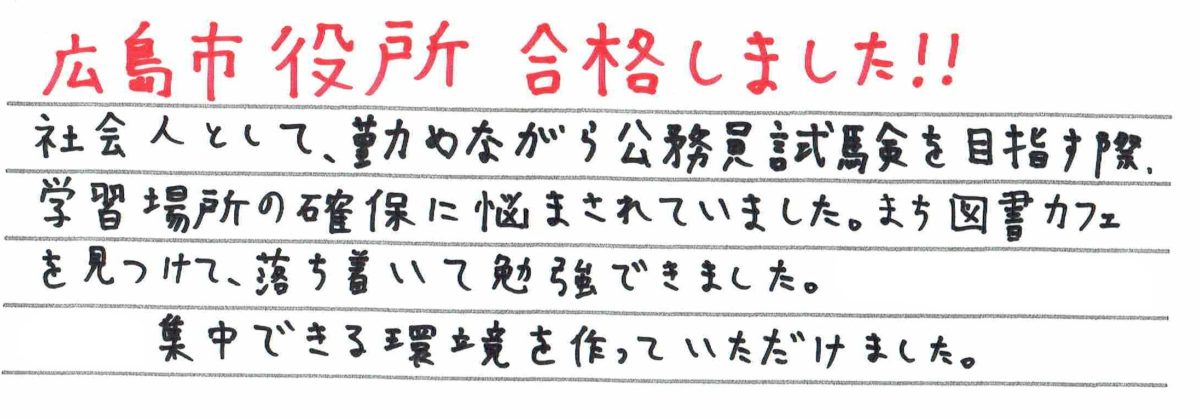 広島市役所 合格しました!!
社会人として、勤めながら公務員試験を目指す際、
学習場所の確保に悩まされていました。まち図書カフェ
を見つけて、落ち着いて勉強できました。
集中できる環境を作っていただけました。